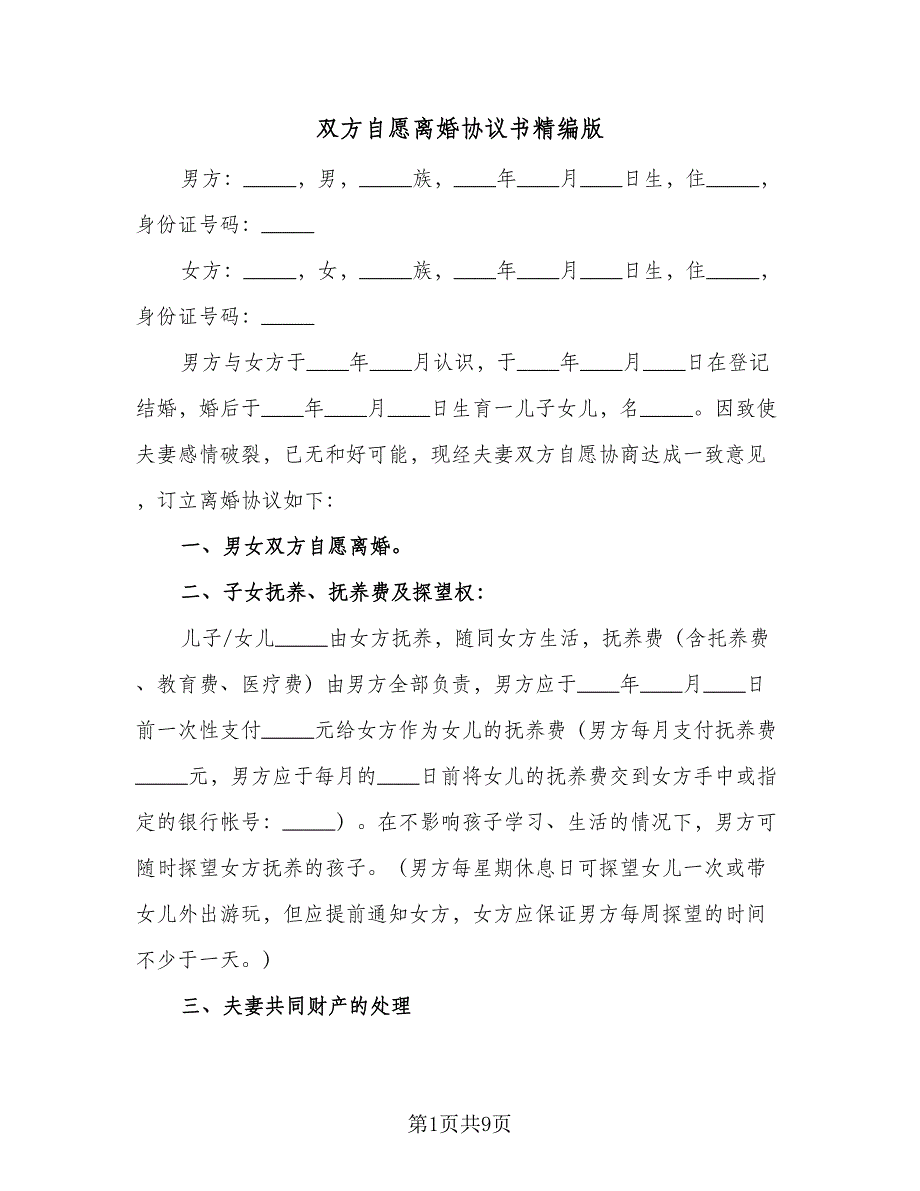 双方自愿离婚协议书精编版
男方：_____，男，_____族，____年____月____日生，住_____，
身份证号码：_____
女方：_____，女，_____族，____年____月____日生，住_____，
身份证号码：_____
男方与女方于____年____月认识，于____年____月____日在登记
结婚，婚后于____年____月____日生育一儿子女儿，名_____。因致使
夫妻感情破裂，已无和好可能，现经夫妻双方自愿协商达成一致意见
，订立离婚协议如下：
一、男女双方自愿离婚。
二、子女抚养、抚养费及探望权：
儿子/女儿_____由女方抚养，随同女方生活，抚养费（含托养费
、教育费、医疗费）由男方全部负责，男方应于____年____月____日
前一次性支付_____元给女方作为女儿的抚养费（男方每月支付抚养费
_____元，男方应于每月的____日前将女儿的抚养费交到女方手中或指
定的银行帐号：_____）。在不影响孩子学习、生活的情况下，男方可
随时探望女方抚养的孩子。（男方每星期休息日可探望女儿一次或带
女儿外出游玩，但应提前通知女方，女方应保证男方每周探望的时间
不少于一天。）
三、夫妻共同财产的处理
第1页共9页